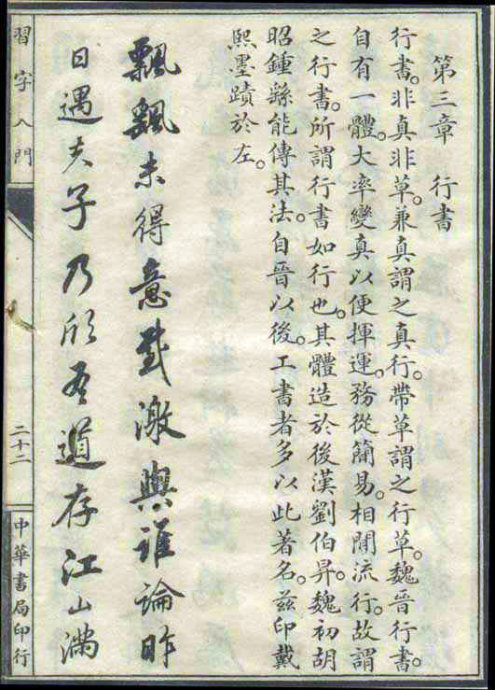 第三章 行書
行書。非真非草。兼真謂之真行。帶草謂之行草。魏晉行書。
自有一體。大率變真以便揮運。務從簡易。相閒流行。故謂
之行書。所謂行書如行也。其體造於後漢劉伯昇。魏初胡
昭鍾繇能傳其法。自晉以後。工書者多以此著名。茲印戴
熙墨蹟於左。
飄飄未得意感激與誰論昨
日遇夫子乃欣吾道存江山滿
習字入門
二十二
中華書局印行